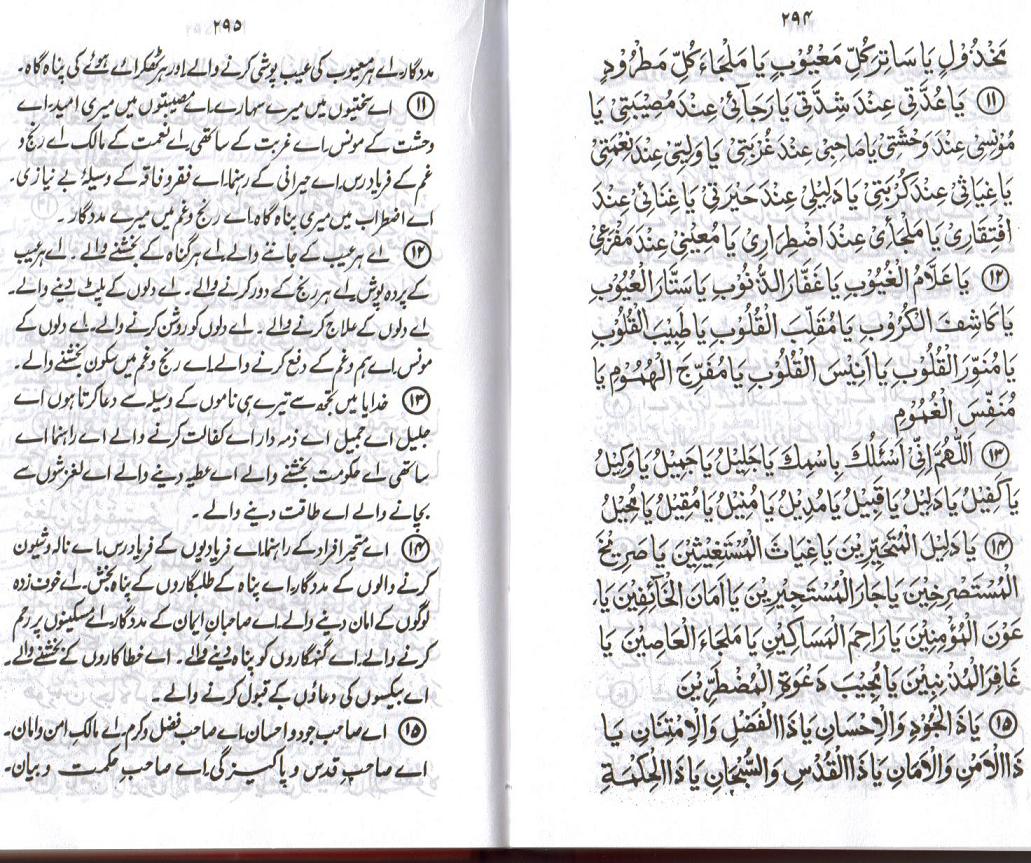 ۲۹۴
مَخْذُوْلٍ يَا سَاتِرَ كُلِّ مَعْيُوْبٍ يَا مَلْجَاءَ كُلِّ مَطْرُوْدٍ
۱۱ يَا عُدَّتِيْ عِنْدَ شِدَّتِيْ يَا رَجَآئِيْ عِنْدَ مُصِيْبَتِيْ يَا
مُوْنِسِيْ عِنْدَ وَحْشَتِيْ يَا صَاحِبِيْ عِنْدَ غُرْبَتِيْ يَا وَلِيِّيْ عِنْدَ نِعْمَتِيْ
يَا غِيَاثِيْ عِنْدَ كُرْبَتِيْ يَا دَلِيْلِيْ عِنْدَ حَيْرَتِيْ يَا غِنَائِيْ عِنْدَ
افْتِقَارِيْ يَا مَلْجَأِيْ عِنْدَ اضْطِرَارِيْ يَا مُعِيْنِيْ عِنْدَ مَفْزَعِيْ
۱۲ يَا عَلَّامَ الْغُيُوْبِ يَا غَفَّارَ الذُّنُوْبِ يَا سَتَّارَ الْعُيُوْبِ
يَا كَاشِفَ الْكُرُوْبِ يَا مُقَلِّبَ الْقُلُوْبِ يَا طَبِيْبَ الْقُلُوْبِ
يَا مُنَوِّرَ الْقُلُوْبِ يَا اَنِيْسَ الْقُلُوْبِ يَا مُفَرِّجَ الْهُمُوْمِ يَا
مُنَفِّسَ الْغُمُوْمِ
۱۳ اَللّٰهُمَّ اِنِّيْ اَسْئَلُكَ بِاسْمِكَ يَا جَلِيْلُ يَا جَمِيْلُ يَا وَكِيْلُ
يَا كَفِيْلُ يَا دَلِيْلُ يَا قَبِيْلُ يَا مُدِيْلُ يَا مُنِيْلُ يَا مُقِيْلُ يَا مُحِيْلُ
۱۴ يَا دَلِيْلَ الْمُتَحَيِّرِيْنَ يَا غِيَاثَ الْمُسْتَغِيْثِيْنَ يَا صَرِيْخَ
الْمُسْتَصْرِخِيْنَ يَا جَارَ الْمُسْتَجِيْرِيْنَ يَا اَمَانَ الْخَآئِفِيْنَ يَا
عَوْنَ الْمُؤْمِنِيْنَ يَا رَاحِمَ الْمَسَاكِيْنِ يَا مَلْجَاءَ الْعَاصِيْنَ يَا
غَافِرَ الْمُذْنِبِيْنَ يَا مُجِيْبَ دَعْوَةِ الْمُضْطَرِّيْنَ
۱۵ يَا ذَا الْجُوْدِ وَالْاِحْسَانِ يَا ذَا الْفَضْلِ وَالْاِمْتِنَانِ يَا
ذَا الْاَمْنِ وَالْاَمَانِ يَا ذَا الْقُدْسِ وَالسُّبْحَانِ يَا ذَا الْحِكْمَةِ
۲۹۵
مددگار۔ اے ہر معیوب کی عیب پوشی کرنے والے اور ہر ٹھکرائے ہوئے کی پناہ گاہ۔
۱۱ اے سختیوں میں میرے سہارے۔ اے مصیبتوں میں میری امید۔ اے
وحشت کے مونس۔ اے غربت کے ساتھی۔ اے نعمت کے مالک اے رنج و
غم کے فریاد رس۔ اے حیرانی کے رہنما۔ اے فقر و فاقہ کے وسیلۂ بے نیازی۔
اے اضطراب میں میری پناہ گاہ۔ اے رنج و غم میں میرے مددگار۔
۱۲ اے ہر عیب کے جاننے والے۔ اے ہر گناہ کے بخشنے والے۔ اے ہر عیب
کے پردہ پوش۔ اے ہر رنج کے دور کرنے والے۔ اے دلوں کے پلٹ دینے والے۔
اے دلوں کے علاج کرنے والے۔ اے دلوں کو روشن کرنے والے۔ اے دلوں کے
مونس۔ اے ہم و غم کے دفع کرنے والے۔ اے رنج و غم میں سکون بخشنے والے۔
۱۳ خدایا میں تجھ سے تیرے ہی ناموں کے وسیلہ سے دعا کرتا ہوں اے
جلیل اے جمیل اے ذمہ دار اے کفالت کرنے والے اے راہنما اے
ساتھی اے حکومت بخشنے والے اے عطیہ دینے والے اے لغزشوں سے
بچانے والے اے طاقت دینے والے۔
۱۴ اے متحیر افراد کے راہنما۔ اے فریادیوں کے فریاد رس۔ اے نالہ و شیون
کرنے والوں کے مددگار۔ اے پناہ کے طلبگاروں کے پناہ بخش۔ اے خوف زدہ
لوگوں کے امان دینے والے۔ اے صاحبان ایمان کے مددگار۔ اے مسکینوں پر رحم
کرنے والے۔ اے گنہگاروں کو پناہ دینے والے۔ اے خطاکاروں کے بخشنے والے۔
اے بیکسوں کی دعاؤں کے قبول کرنے والے۔
۱۵ اے صاحب جود و احسان۔ اے صاحب فضل و کرم۔ اے مالک امن و امان۔
اے صاحب قدس و پاکیزگی۔ اے صاحب حکمت و بیان۔